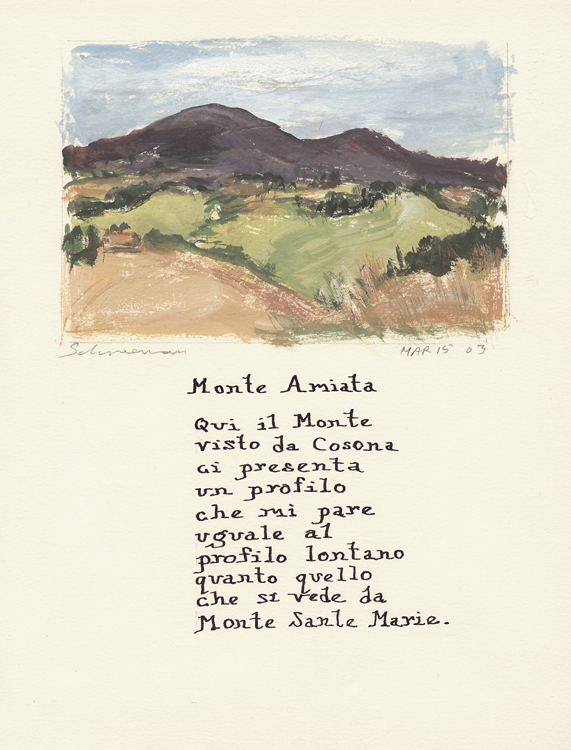 Schneeman
MAR 15 03
Monte Amiata
Qui il Monte
visto da Cosona
ci presenta
un profilo
che mi pare
uguale al
profilo lontano
quanto quello
che si vede da
Monte Sante Marie.